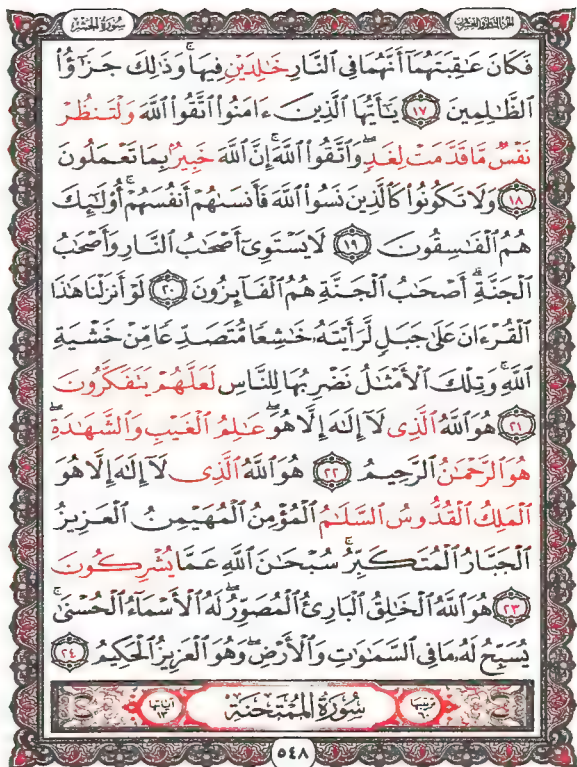 الجزء الثامن والعشرون سُورَةُ الحَشْرِ
فَكَانَ عَٰقِبَتَهُمَآ أَنَّهُمَا فِي ٱلنَّارِ خَٰلِدَيْنِ فِيهَاۚ وَذَٰلِكَ جَزَٰٓؤُاْ
ٱلظَّٰلِمِينَ ١٧ يَٰٓأَيُّهَا ٱلَّذِينَ ءَامَنُواْ ٱتَّقُواْ ٱللَّهَ وَلْتَنظُرْ
نَفْسٌ مَّا قَدَّمَتْ لِغَدٍۖ وَٱتَّقُواْ ٱللَّهَۚ إِنَّ ٱللَّهَ خَبِيرٌۢ بِمَا تَعْمَلُونَ
١٨ وَلَا تَكُونُواْ كَٱلَّذِينَ نَسُواْ ٱللَّهَ فَأَنسَىٰهُمْ أَنفُسَهُمْۚ أُوْلَٰٓئِكَ
هُمُ ٱلْفَٰسِقُونَ ١٩ لَا يَسْتَوِيٓ أَصْحَٰبُ ٱلنَّارِ وَأَصْحَٰبُ
ٱلْجَنَّةِۚ أَصْحَٰبُ ٱلْجَنَّةِ هُمُ ٱلْفَآئِزُونَ ٢٠ لَوْ أَنزَلْنَا هَٰذَا
ٱلْقُرْءَانَ عَلَىٰ جَبَلٍ لَّرَأَيْتَهُۥ خَٰشِعًا مُّتَصَدِّعًا مِّنْ خَشْيَةِ
ٱللَّهِۚ وَتِلْكَ ٱلْأَمْثَٰلُ نَضْرِبُهَا لِلنَّاسِ لَعَلَّهُمْ يَتَفَكَّرُونَ
٢١ هُوَ ٱللَّهُ ٱلَّذِي لَآ إِلَٰهَ إِلَّا هُوَۖ عَٰلِمُ ٱلْغَيْبِ وَٱلشَّهَٰدَةِۖ
هُوَ ٱلرَّحْمَٰنُ ٱلرَّحِيمُ ٢٢ هُوَ ٱللَّهُ ٱلَّذِي لَآ إِلَٰهَ إِلَّا هُوَ
ٱلْمَلِكُ ٱلْقُدُّوسُ ٱلسَّلَٰمُ ٱلْمُؤْمِنُ ٱلْمُهَيْمِنُ ٱلْعَزِيزُ
ٱلْجَبَّارُ ٱلْمُتَكَبِّرُۚ سُبْحَٰنَ ٱللَّهِ عَمَّا يُشْرِكُونَ
٢٣ هُوَ ٱللَّهُ ٱلْخَٰلِقُ ٱلْبَارِئُ ٱلْمُصَوِّرُۖ لَهُ ٱلْأَسْمَآءُ ٱلْحُسْنَىٰۚ
يُسَبِّحُ لَهُۥ مَا فِي ٱلسَّمَٰوَٰتِ وَٱلْأَرْضِۖ وَهُوَ ٱلْعَزِيزُ ٱلْحَكِيمُ ٢٤
ترتيبها ٦٠ سُورَةُ المُمْتَحنَةِ آياتها ١٣
٥٤٨